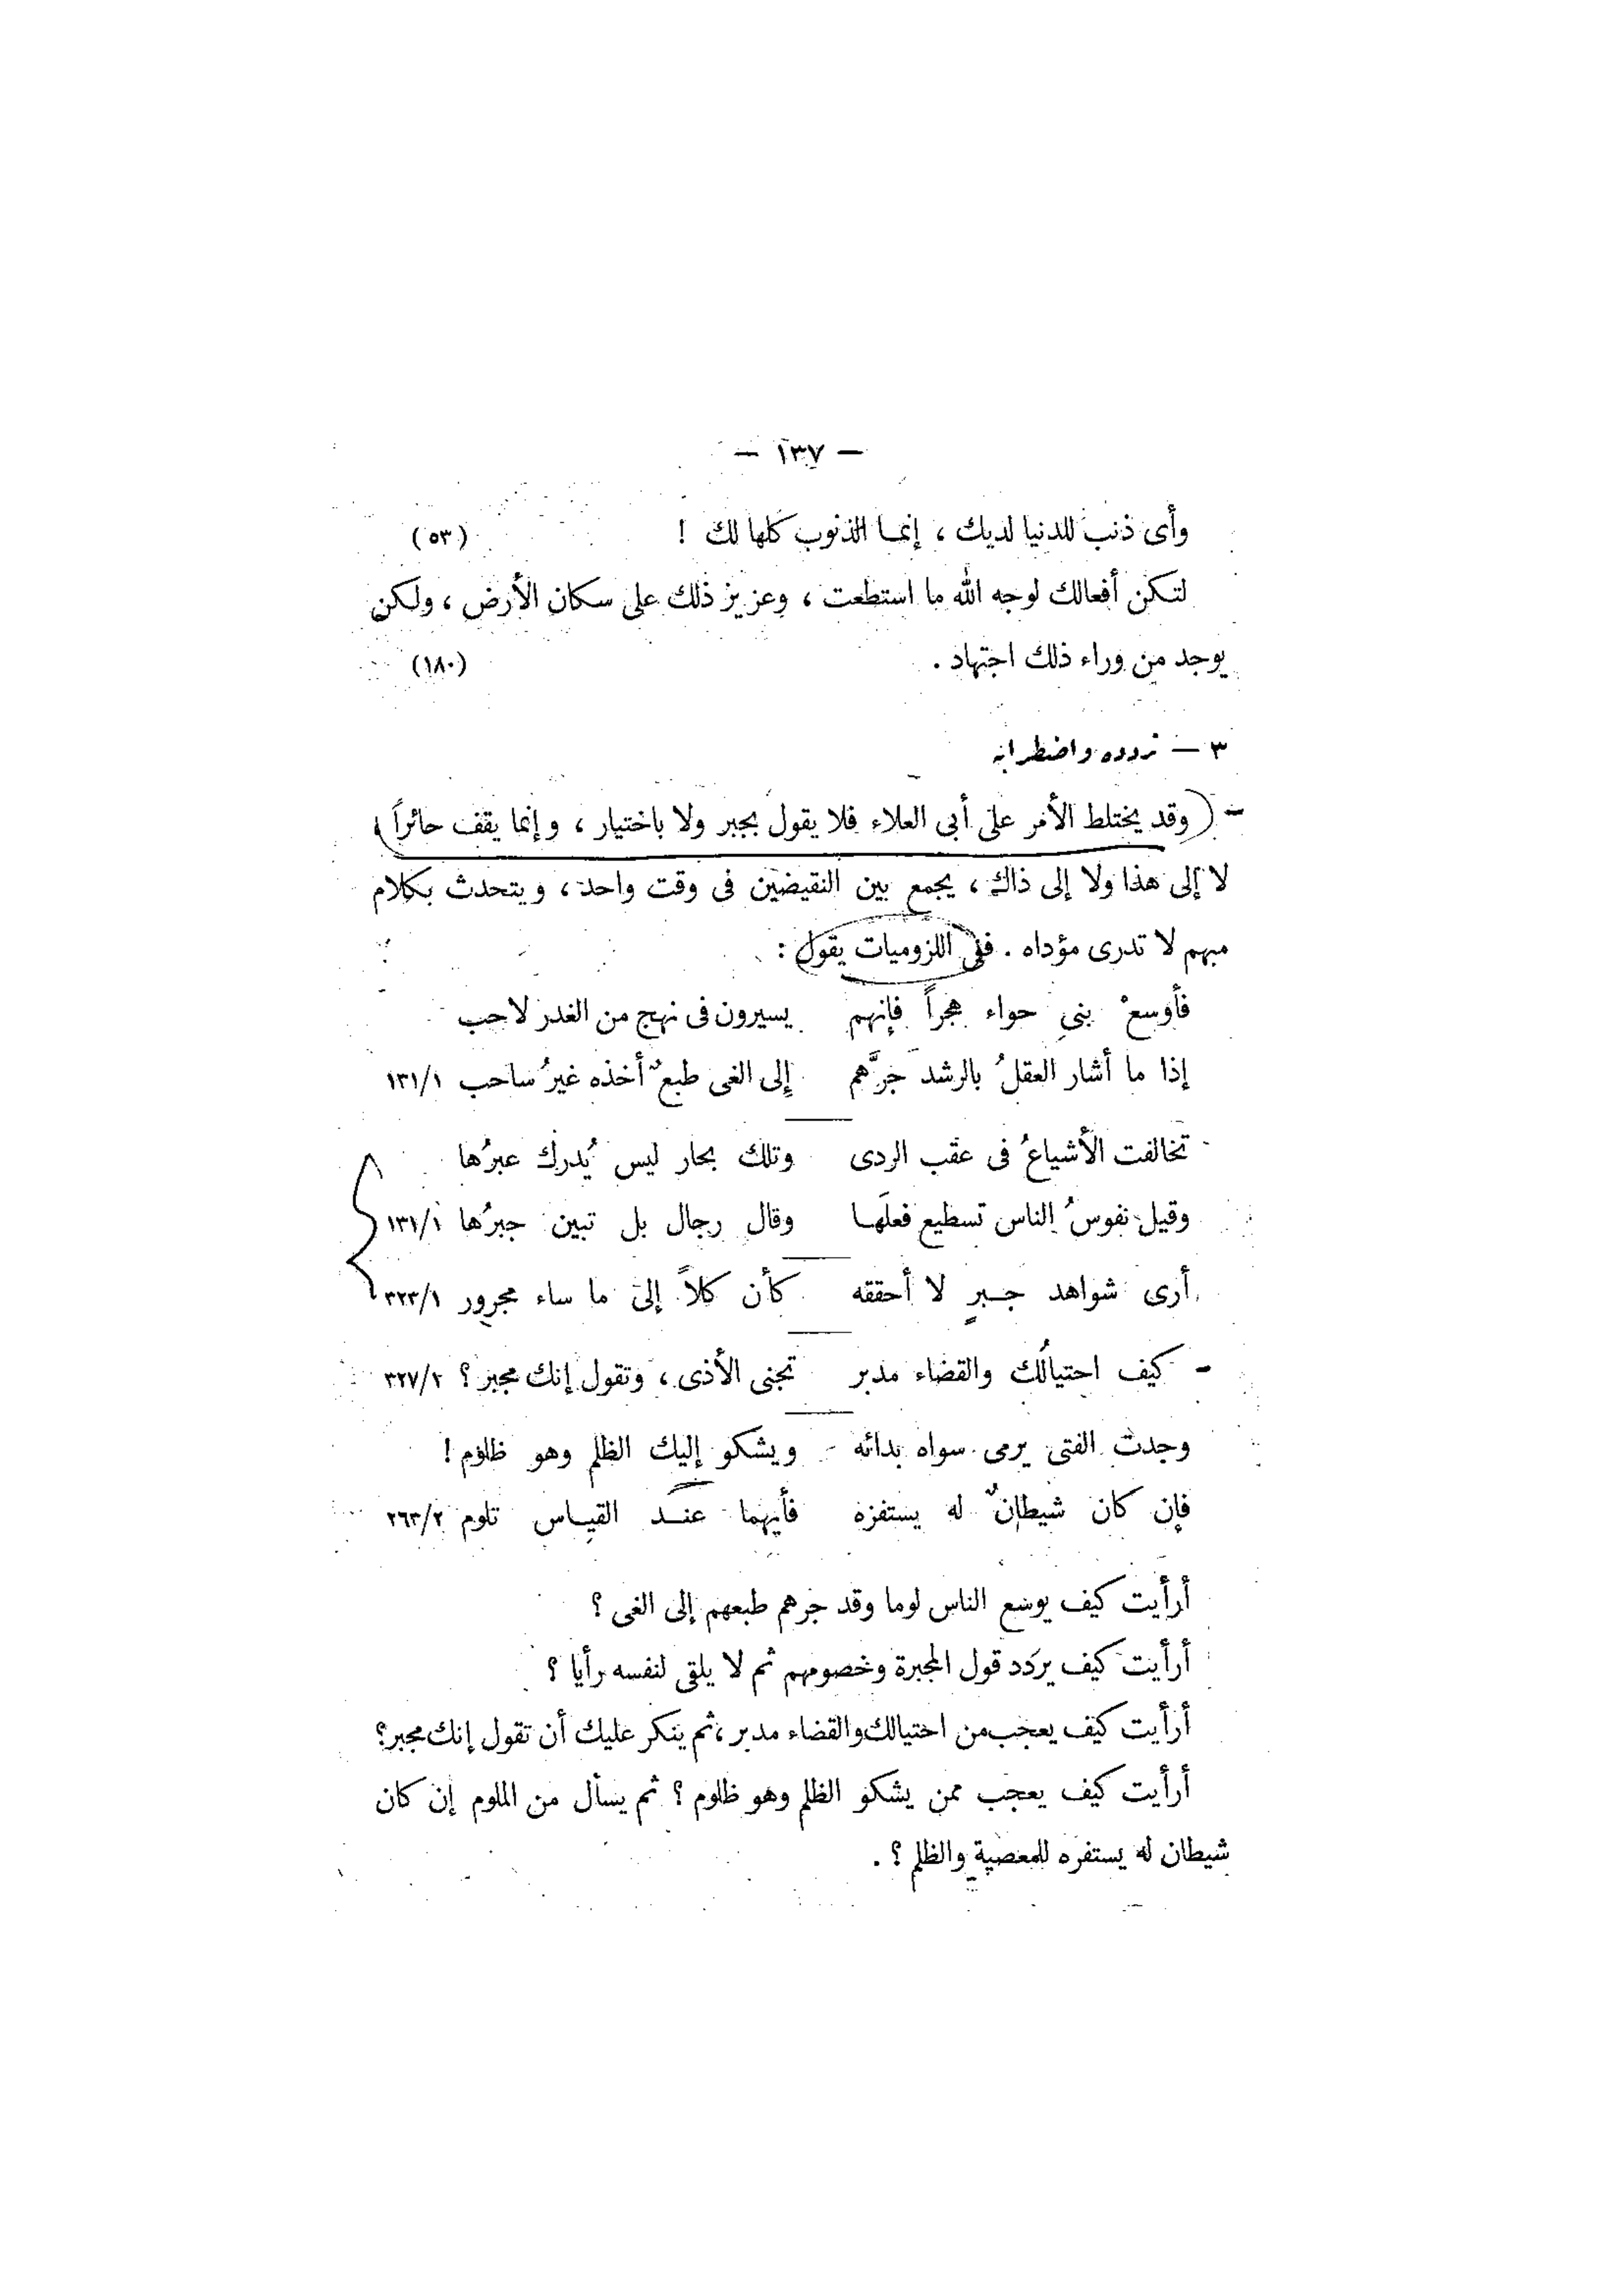 — ١٣٧ —
وأى ذنب للدنيا لديك ، إنما الذنوب كلها لك ! (٥٣)
لتكن أفعالك لوجه الله ما استطعت ، وعزيز ذلك على سكان الأرض ، ولكن
يوجد من وراء ذلك اجتهاد . (١٨٠)
٣ — تردده واضطرابه
- ( وقد يختلط الأمر على أبى العلاء فلا يقول بجبر ولا باختيار ، وإنما يقف حائراً )
لا إلى هذا ولا إلى ذاك ، يجمع بين النقيضين فى وقت واحد ، ويتحدث بكلام
مبهم لا تدرى مؤداه . فى اللزوميات يقول :
فأوسعْ بنى حواء هجراً فإنهم يسيرون فى نهج من الغدر لاحب
إذا ما أشار العقلُ بالرشد جرَّهم إلى الغى طبعٌ أخذه غيرُ ساحب ١٣١/١
تخالفت الأشياعُ فى عقب الردى وتلك بحار ليس يُدرك عبرُها
وقيل نفوسُ الناس تسطيع فعلَها وقال رجال بل تبين جبرُها ١٣١/١
أرى شواهد جبرٍ لا أحققه كأن كلاً إلى ما ساء مجرور ٣٢٣/١
- كيف احتيالُك والقضاء مدبر تجنى الأذى ، وتقول إنك مجبر ؟ ٣٢٧/٢
وجدت الفتى يرمى سواه بدائه ويشكو إليك الظلم وهو ظلوم !
فإن كان شيطانٌ له يستفزه فأيهما عند القياس تلوم ٢٦٣/٢
أرأيت كيف يوسع الناس لوما وقد جرهم طبعهم إلى الغى ؟
أرأيت كيف يردد قول المجبرة وخصومهم ثم لا يلقى لنفسه رأيا ؟
أرأيت كيف يعجب من احتيالك والقضاء مدبر ، ثم ينكر عليك أن تقول إنك مجبر ؟
أرأيت كيف يعجب ممن يشكو الظلم وهو ظلوم ؟ ثم يسأل من الملوم إن كان
شيطان له يستفزه للمعصية والظلم ؟ .